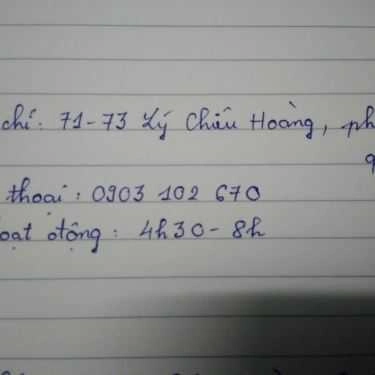 chỉ: 71-73 Lý Chiêu Hoàng, ph
thoại: 0903 102 670
oạt động: 4h30-8h